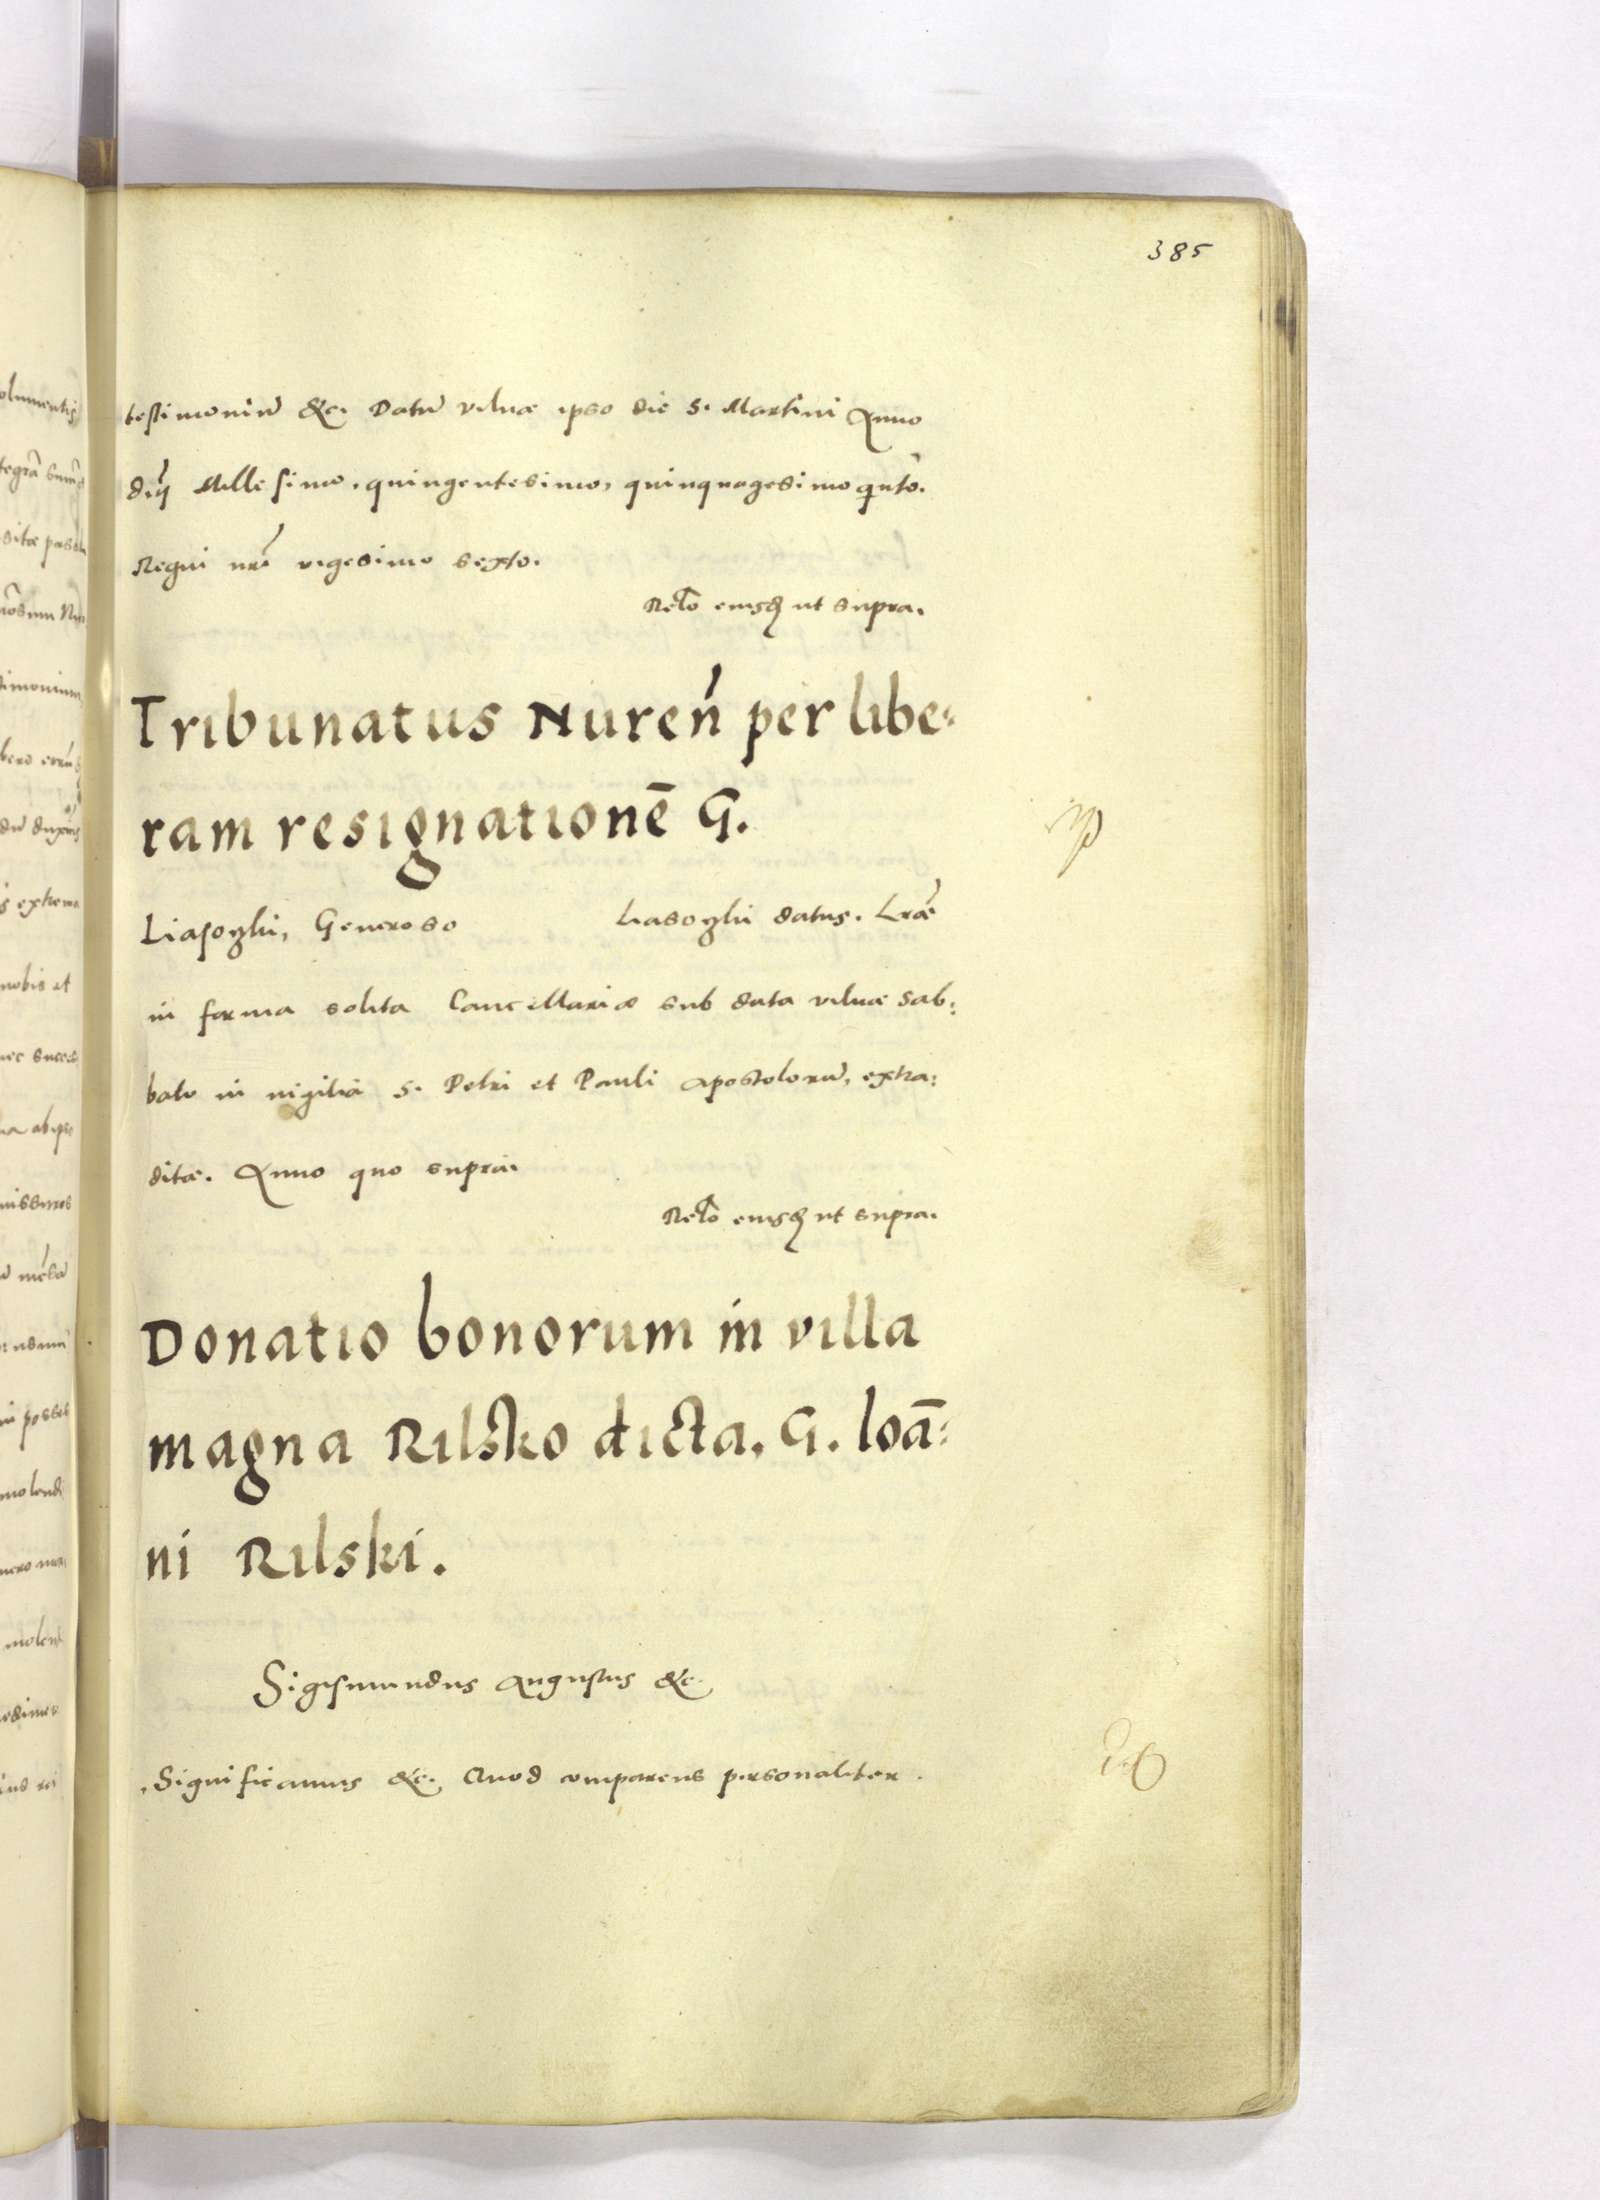 385
testimoniũ &c. Datũ vilnæ ipso die S. Martini Anno
dñi Millesimo, quingentesimo, quinquagesimo qnto.
Regni nri vigesimo sexto.
Relo eiusd ut supra.
Tribunatus Nureń per libe:
ram resignationē G.
Liasoghi, Generoso Liasoghi datus. Lræ
in forma solita Cancellariæ sub data vilnæ Sab:
bato in vigilia S. Petri et Pauli apostolorũ, extra:
ditæ. Anno quo supra.
Relo eiusd ut supra.
Donatio bonorum in villa
magna Rilsko dicta. G. Ioā:
ni Rilski.
Sigismundus Augustus &c.
Significamus &c. Quod comparens personaliter.